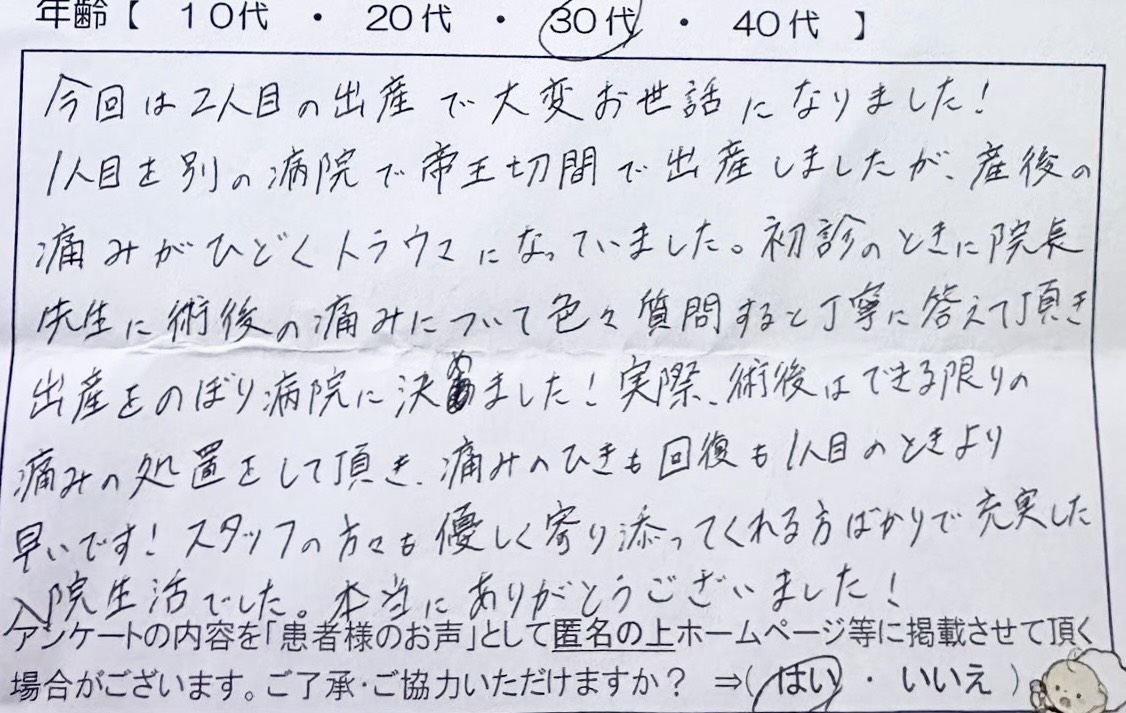 年齢【 10代 ・ 20代 ・ 30代 ・ 40代 】
今回は2人目の出産で大変お世話になりました!
1人目を別の病院で帝王切間で出産しましたが、産後の
痛みがひどくトラウマになっていました。初診のときに院長
先生に術後の痛みについて色々質問すると丁寧に答えて頂き
出産をのぼり病院に決めました!実際、術後はできる限りの
痛みの処置をして頂き、痛みのひきも回復も1人目のときより
早いです!スタッフの方々も優しく寄り添ってくれる方ばかりで充実した
入院生活でした。本当にありがとうございました!
アンケートの内容を「患者様のお声」として匿名の上ホームページ等に掲載させて頂く
場合がございます。ご了承・ご協力いただけますか? ⇒( はい ・ いいえ )